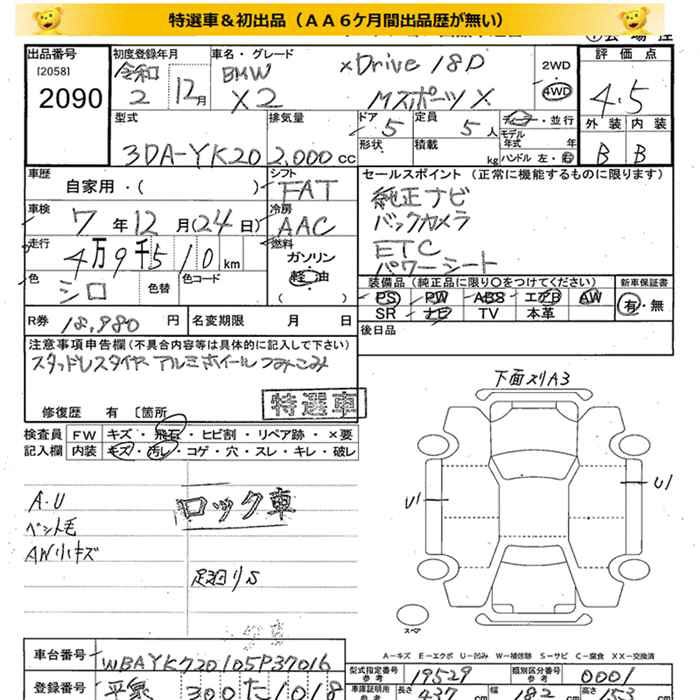 特選車&初出品（AA6ケ月間出品歴が無い）
出品番号
[2058]
2090
初度登録年月
令和 2 12月
車名・グレード
BMW X2
xDrive 18D
Mスポーツ X
2WD
4WD
評価点
4.5
外装 内装
B B
型式
3DA-YK20
排気量
2,000 cc
ドア 5
形状
定員 5 人
積載 kg
ディーラー・並行
モデル年式 年
ハンドル 左・右
車歴
自家用・（ ）
シフト
FAT
車検
7年12月(24日)
冷房
AAC
走行
4万9千510 km
燃料
ガソリン
軽油
色
シロ
色替
色コード
R券 18,980 円
名変期限 月 日
セールスポイント（正常に機能するものに限ります）
純正ナビ
バックカメラ
ETC
パワーシート
装備品（純正品に限り○をつけてください）
PS PW ABS エアB AW
SR ナビ TV 本革
新車保証書
有・無
後日品
注意事項申告欄（不具合内容等は具体的に記入して下さい）
スタッドレスタイヤ アルミホイール つみこみ
修復歴 有 〔箇所
特選車
検査員記入欄
FW キズ・飛石・ヒビ割・リペア跡・×要
内装 キズ・汚レ・コゲ・穴・スレ・キレ・破レ
A.U
ペット毛
AW小キズ
ロック車
足廻りS
下面スリA3
U1
U1
スペア
A-キズ E-エクボ U-凹み W-補修跡 S-サビ C-腐食 XX-交換済
車台番号
WBAYK720105P37016
登録番号
平泉 300 た 1018
型式指定番号 参考
19529
類別区分番号 参考
0001
車庫証明用 参考
長さ 437 cm
幅 182 cm
高さ 153 cm